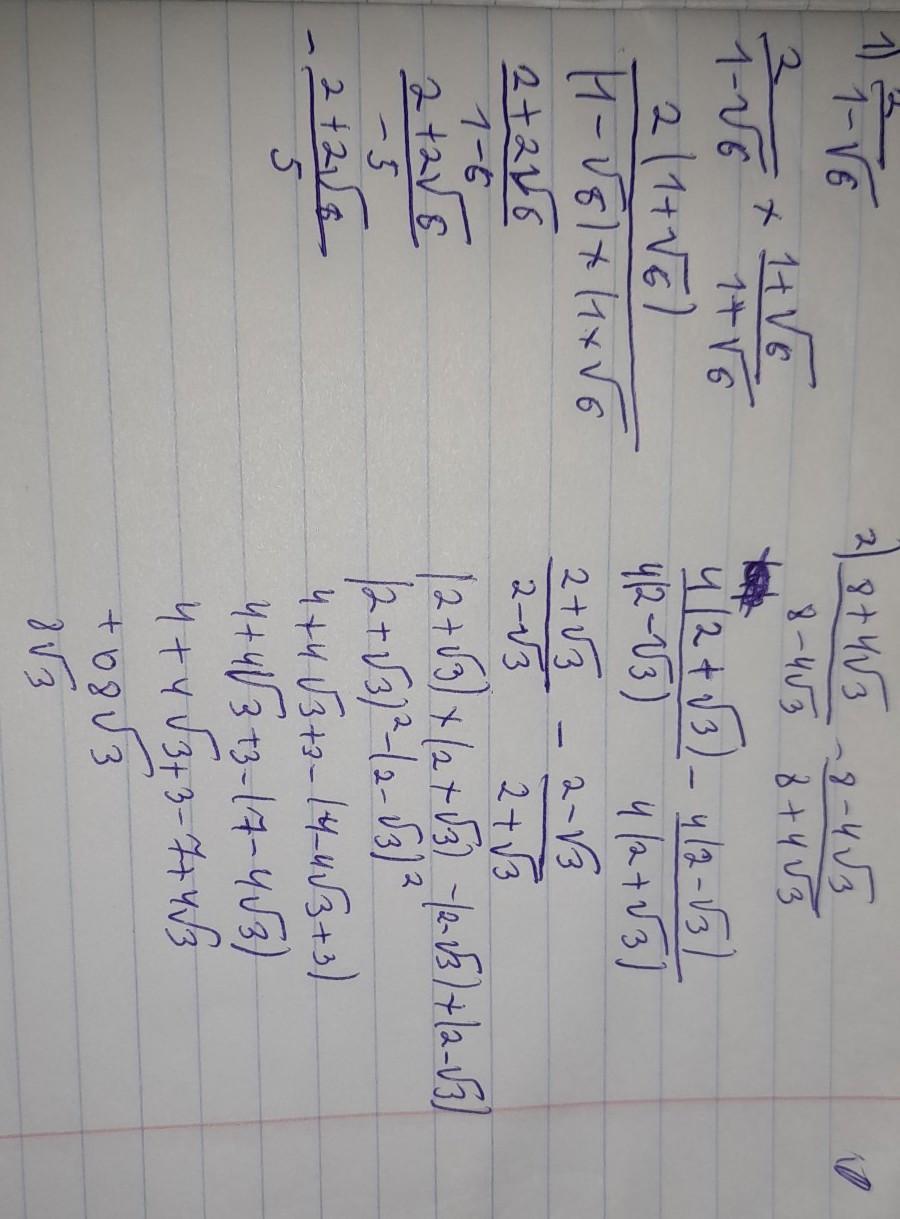 1) 2/(1-√6)
2/(1-√6) × (1+√6)/(1+√6)
2(1+√6)/(1-√6)×(1×√6
(2+2√6)/(1-6)
(2+2√6)/-5
- (2+2√6)/5
2) (8+4√3)/(8-4√3) - (8-4√3)/(8+4√3)
4(2+√3)/4(2-√3) - 4(2-√3)/4(2+√3)
(2+√3)/(2-√3) - (2-√3)/(2+√3)
(2+√3)×(2+√3)-(2-√3)×(2-√3)
(2+√3)²-(2-√3)²
4+4√3+3-(4-4√3+3)
4+4√3+3-(7-4√3)
4+4√3+3-7+4√3
+08√3
8√3